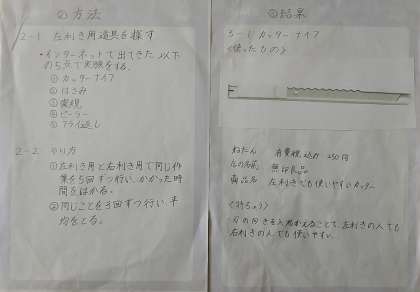 ② 方法
2-1 左利き用道具を探す
・インターネットで出てきた、以下
の5点で実験をする。
① カッターナイフ
② はさみ
③ 定規
④ ピーラー
⑤ フライ返し
2-2 やり方
① 左利き用と右利き用で同じ作
業を5回ずつ行い、かかった時
間をはかる。
② 同じことを3回ずつ行い、平
均をとる。
③ 結果
3-1 カッターナイフ
〈使ったもの〉
ねだん 消費税込み 250円
店の名前 無印良品
商品名 左利きでも使いやすいカッター
〈特ちょう〉
・刃の向きを入れかえることで、左利きの人でも
右利きの人でも使いやすい。